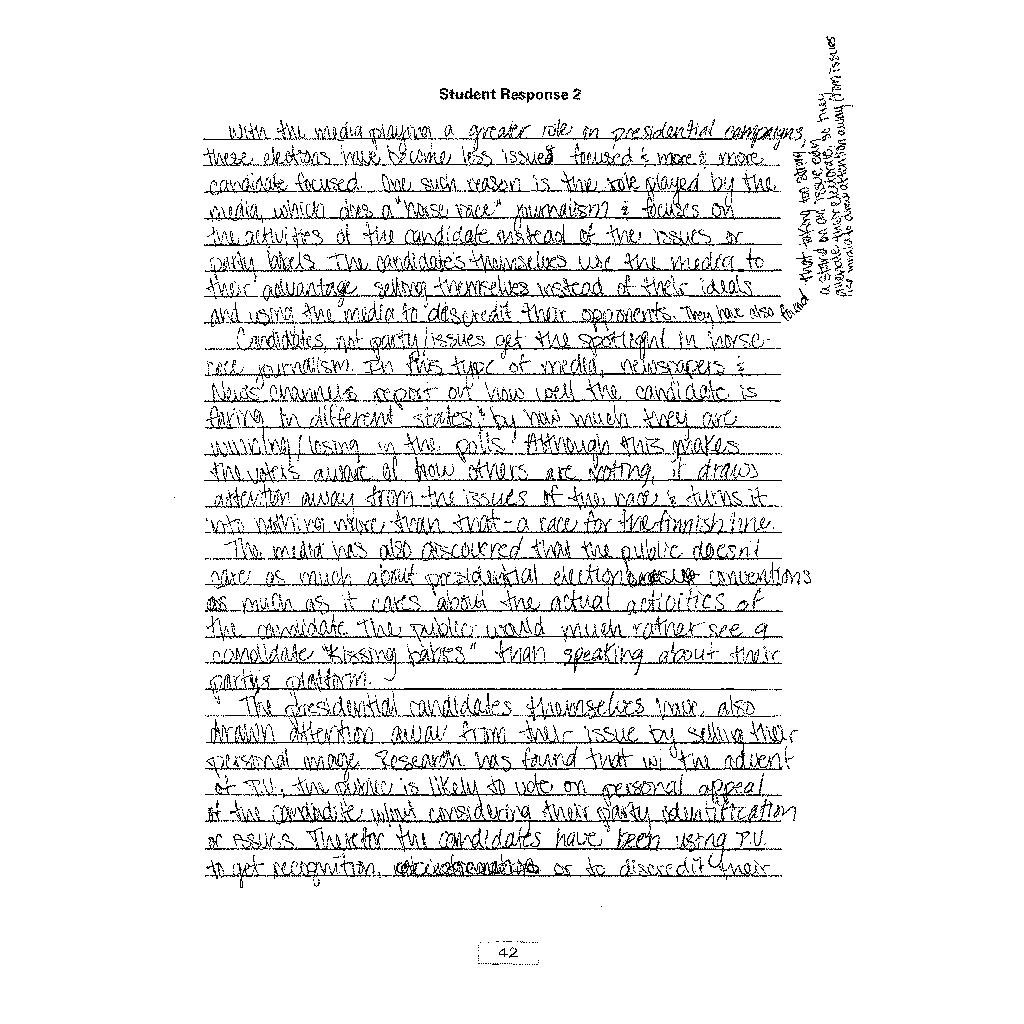 Student Response 2
With the media playing a greater role in presidential campaigns,
these elections have become less issues focused & more & more
candidate focused. One such reason is the role played by the
media, which does a "horse race" journalism & focuses on
the activities of the candidate instead of the issues or
party labels. The candidates themselves use the media to
their advantage selling themselves instead of their ideals
and using the media to discredit their opponents. They have also found
that taking too strong
a stand on an issue can
their electorate, so they
use media to draw attention away from issues
Candidates, not party/issues get the spotlight in horse-
race journalism. In this type of media, newspapers &
News channels report on how well the candidate is
faring in different states & by how much they are
winning/losing in the polls. Although this makes
the voters aware of how others are voting, it draws
attention away from the issues of the race & turns it
into nothing more than that - a race for the finnish line.
The media has also discovered that the public doesn't
care as much about presidential election conventions
as much as it cares about the actual activities of
the candidate. The public would much rather see a
candidate "kissing babies" than speaking about their
party's platform.
The presidential candidates themselves have also
drawn attention away from their issue by selling their
personal image. Research has found that w/ the advent
of T.V., the public is likely to vote on personal appeal
of the candidate w/out considering their party identification
or issues. Therefor the candidates have been using T.V.
to get recognition, or to discredit their
42